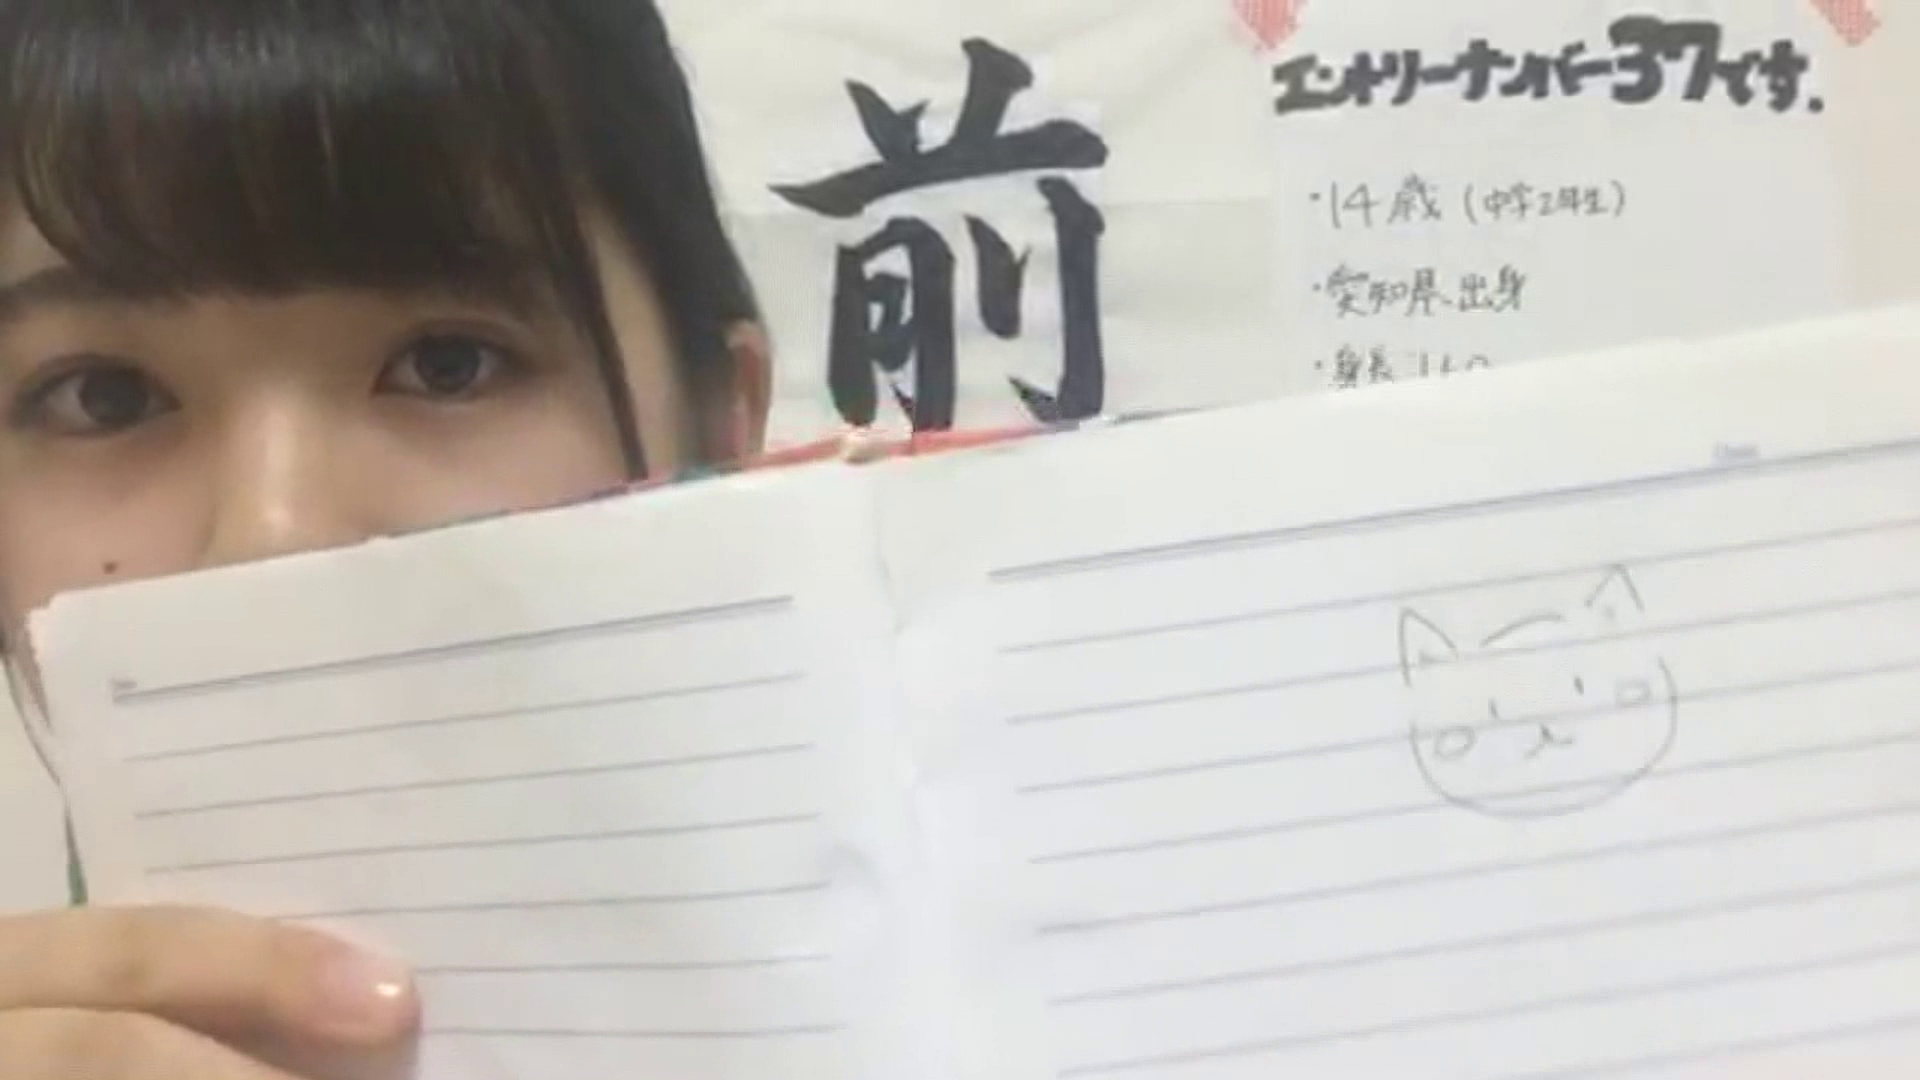 前
エントリーナンバー37です.
・14歳（中学2年生）
・愛知県出身
・身長